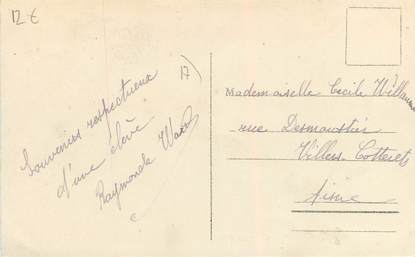 12 €
17
Souvenirs respectueux
d'une élève
Raymonde
Mademoiselle Cecile
rue Demoustier
Villers Cotterets
Aisne